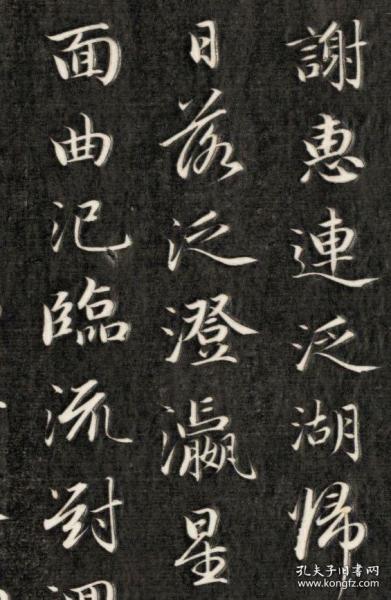 謝惠連泛湖歸
日落泛澄瀛星
面曲汜臨流對
孔夫子旧书网
www.kongfz.com